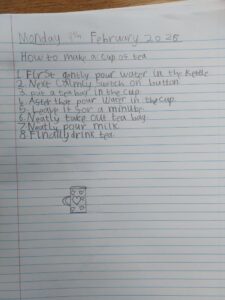 Monday 9th February 2026
How to make a cup of tea
1 First gently pour water in the kettle
2. Next Calmly switch on button.
3. put a tea bar in the cup.
4. After that pour water in the cup.
5. Leave it for a minute.
6. Neatly take out tea bag.
7. Neatly pour milk.
8 Finally drink tea.